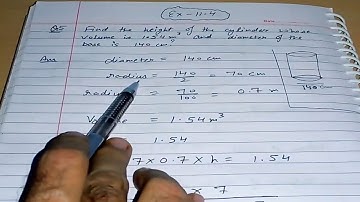 Ex - 11.4
Q5 Find the height of the cylinder whose
volume is 1.54 m³ and diameter of the
base is 140 cm?
Ans diameter = 140 cm
radius = 140/2 = 70 cm
radius = 70/100 = 0.7 m
= 1.54 m³
1.54
7 × 0.7 × h = 1.54
× 7
140 cm